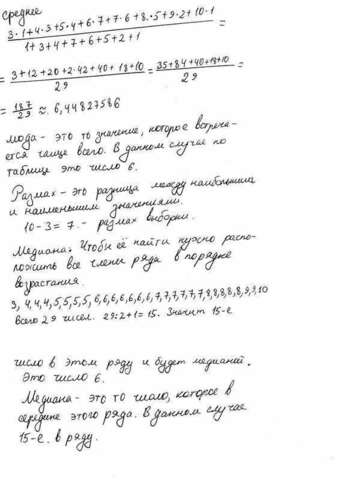 среднее
3·1+4·3+5·4+6·7+7·6+8·5+9·2+10·1
=
1+3+4+7+6+5+2+1
= 3+12+20+2·42+40+18+10 = 35+84+40+18+10 =
29 29
= 187 ≈ 6,44827586
29
Мода - это то значение, которое встреча-
ется чаще всего. В данном случае по
таблице это число 6.
Размах - это разница между наибольшим
и наименьшим значениями.
10-3=7 - размах выборки.
Медиана: Чтобы её найти нужно распо-
ложить все члены ряда в порядке
возрастания.
3, 4,4,4,5,5,5,5,6,6,6,6,6,6,6,7,7,7,7,7,7,8,8,8,8,8,9,9,10
Всего 29 чисел. 29:2+1=15. Значит 15-е
число в этом ряду и будет медианой.
Это число 6.
Медиана - это то число, которое в
середине этого ряда. В данном случае
15-е в ряду.